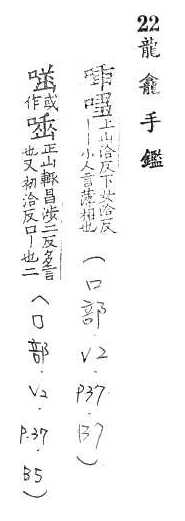 22 龍龕手鑑
上山洽反下女洽反
小人言薄相也
(口部.V2.P37.B7)
或作
正山輒昌涉二反多言
也又初洽反口一也二
(口部.V2.P.37.B5)